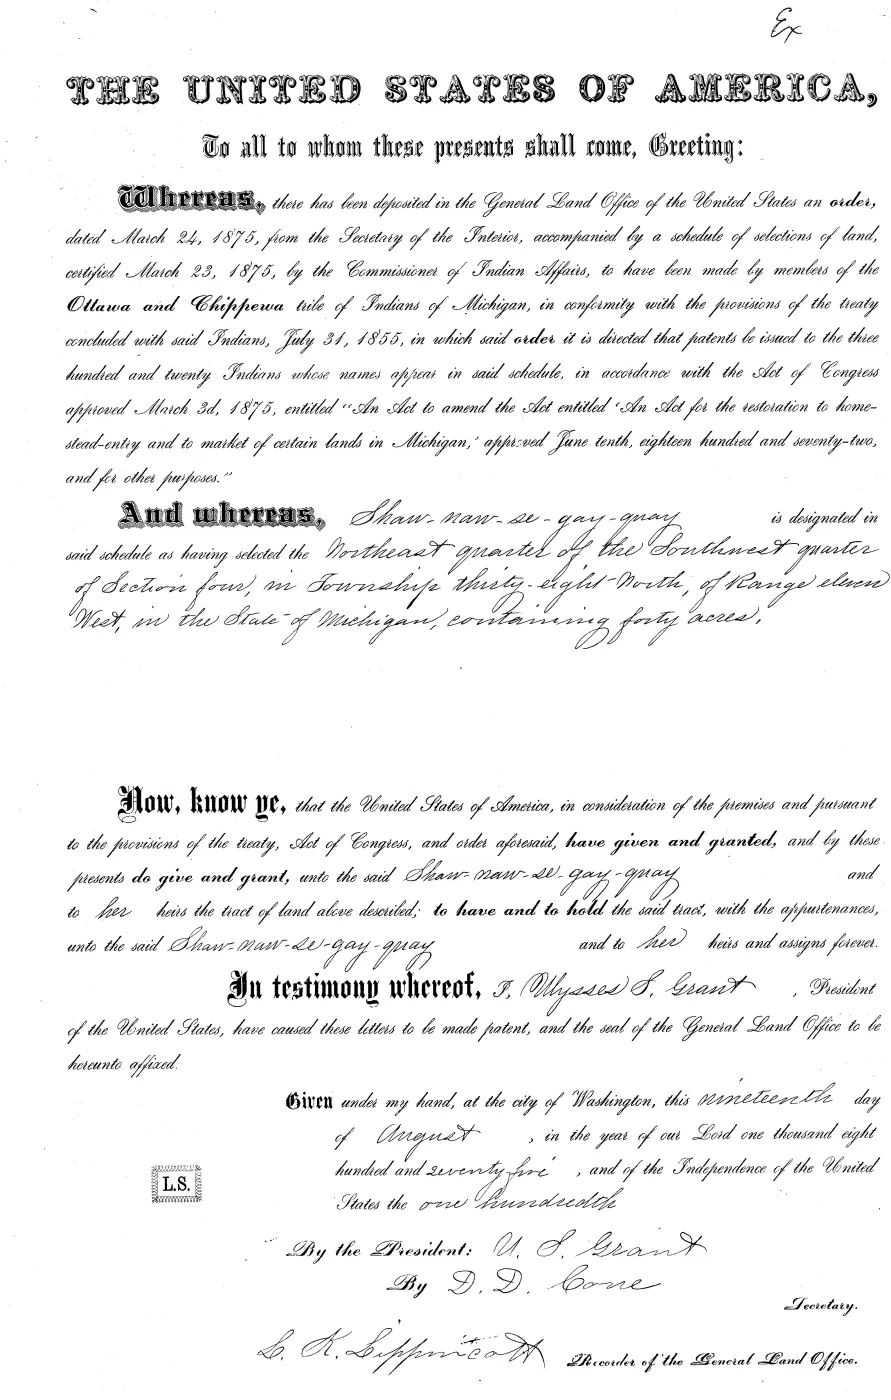 Ex
THE UNITED STATES OF AMERICA,
To all to whom these presents shall come, Greeting:
Whereas, there has been deposited in the General Land Office of the United States an order,
dated March 24, 1875, from the Secretary of the Interior, accompanied by a schedule of selections of land,
certified March 23, 1875, by the Commissioner of Indian Affairs, to have been made by members of the
Ottawa and Chippewa tribe of Indians of Michigan, in conformity with the provisions of the treaty
concluded with said Indians, July 31, 1855, in which said order it is directed that patents be issued to the three
hundred and twenty Indians whose names appear in said schedule, in accordance with the Act of Congress
approved March 3d, 1875, entitled "An Act to amend the Act entitled 'An Act for the restoration to home-
stead-entry and to market of certain lands in Michigan,' approved June tenth, eighteen hundred and seventy-two,
and for other purposes."
And whereas, Shaw-naw-se-gay-quay is designated in
said schedule as having selected the Northeast quarter of the Southwest quarter
of Section four, in Township thirty-eight North, of Range eleven
West, in the State of Michigan, containing forty acres.
Now, know ye, that the United States of America, in consideration of the premises and pursuant
to the provisions of the treaty, Act of Congress, and order aforesaid, have given and granted, and by these
presents do give and grant, unto the said Shaw-naw-se-gay-quay and
to her heirs the tract of land above described; to have and to hold the said tract, with the appurtenances,
unto the said Shaw-naw-se-gay-quay and to her heirs and assigns forever.
In testimony whereof, I, Ulysses S. Grant, President
of the United States, have caused these letters to be made patent, and the seal of the General Land Office to be
hereunto affixed.
Given under my hand, at the city of Washington, this nineteenth day
of August, in the year of our Lord one thousand eight
hundred and seventy five, and of the Independence of the United
States the one hundredth
L.S.
By the President: U. S. Grant
By D. D. Cone
Secretary.
L. K. Lippincott Recorder of the General Land Office.